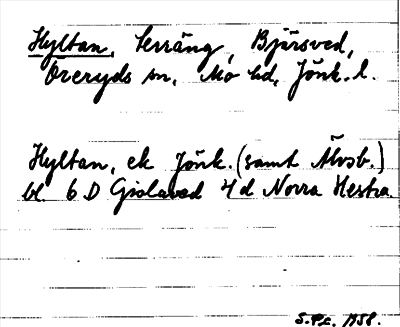 Hyltan, terräng, Bjärsved,
Öreryds sn, Mo hd, Jönk. l.
Hyltan, ek Jönk. (samt Älvsb.)
bl. 6 D Gislaved 4 d Norra Hestra.
1958.